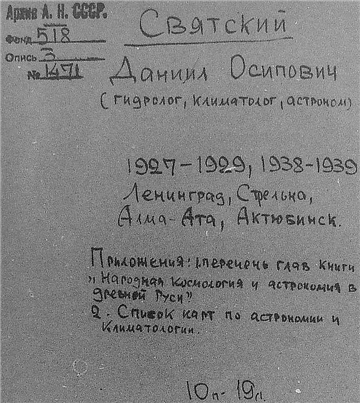 Архив А. Н. СССР.
Фонд 518
Опись 3
№ 1471
Святский
Даниил Осипович
(гидролог, климатолог, астроном)
1927-1929, 1938-1939
Ленинград, Стрельна,
Алма-Ата, Актюбинск.
Приложения: 1. перечень глав книги
„Народная космология и астрономия в
древней Руси"
2. Список карт по астрономии и
климатологии.
10п- 19л.